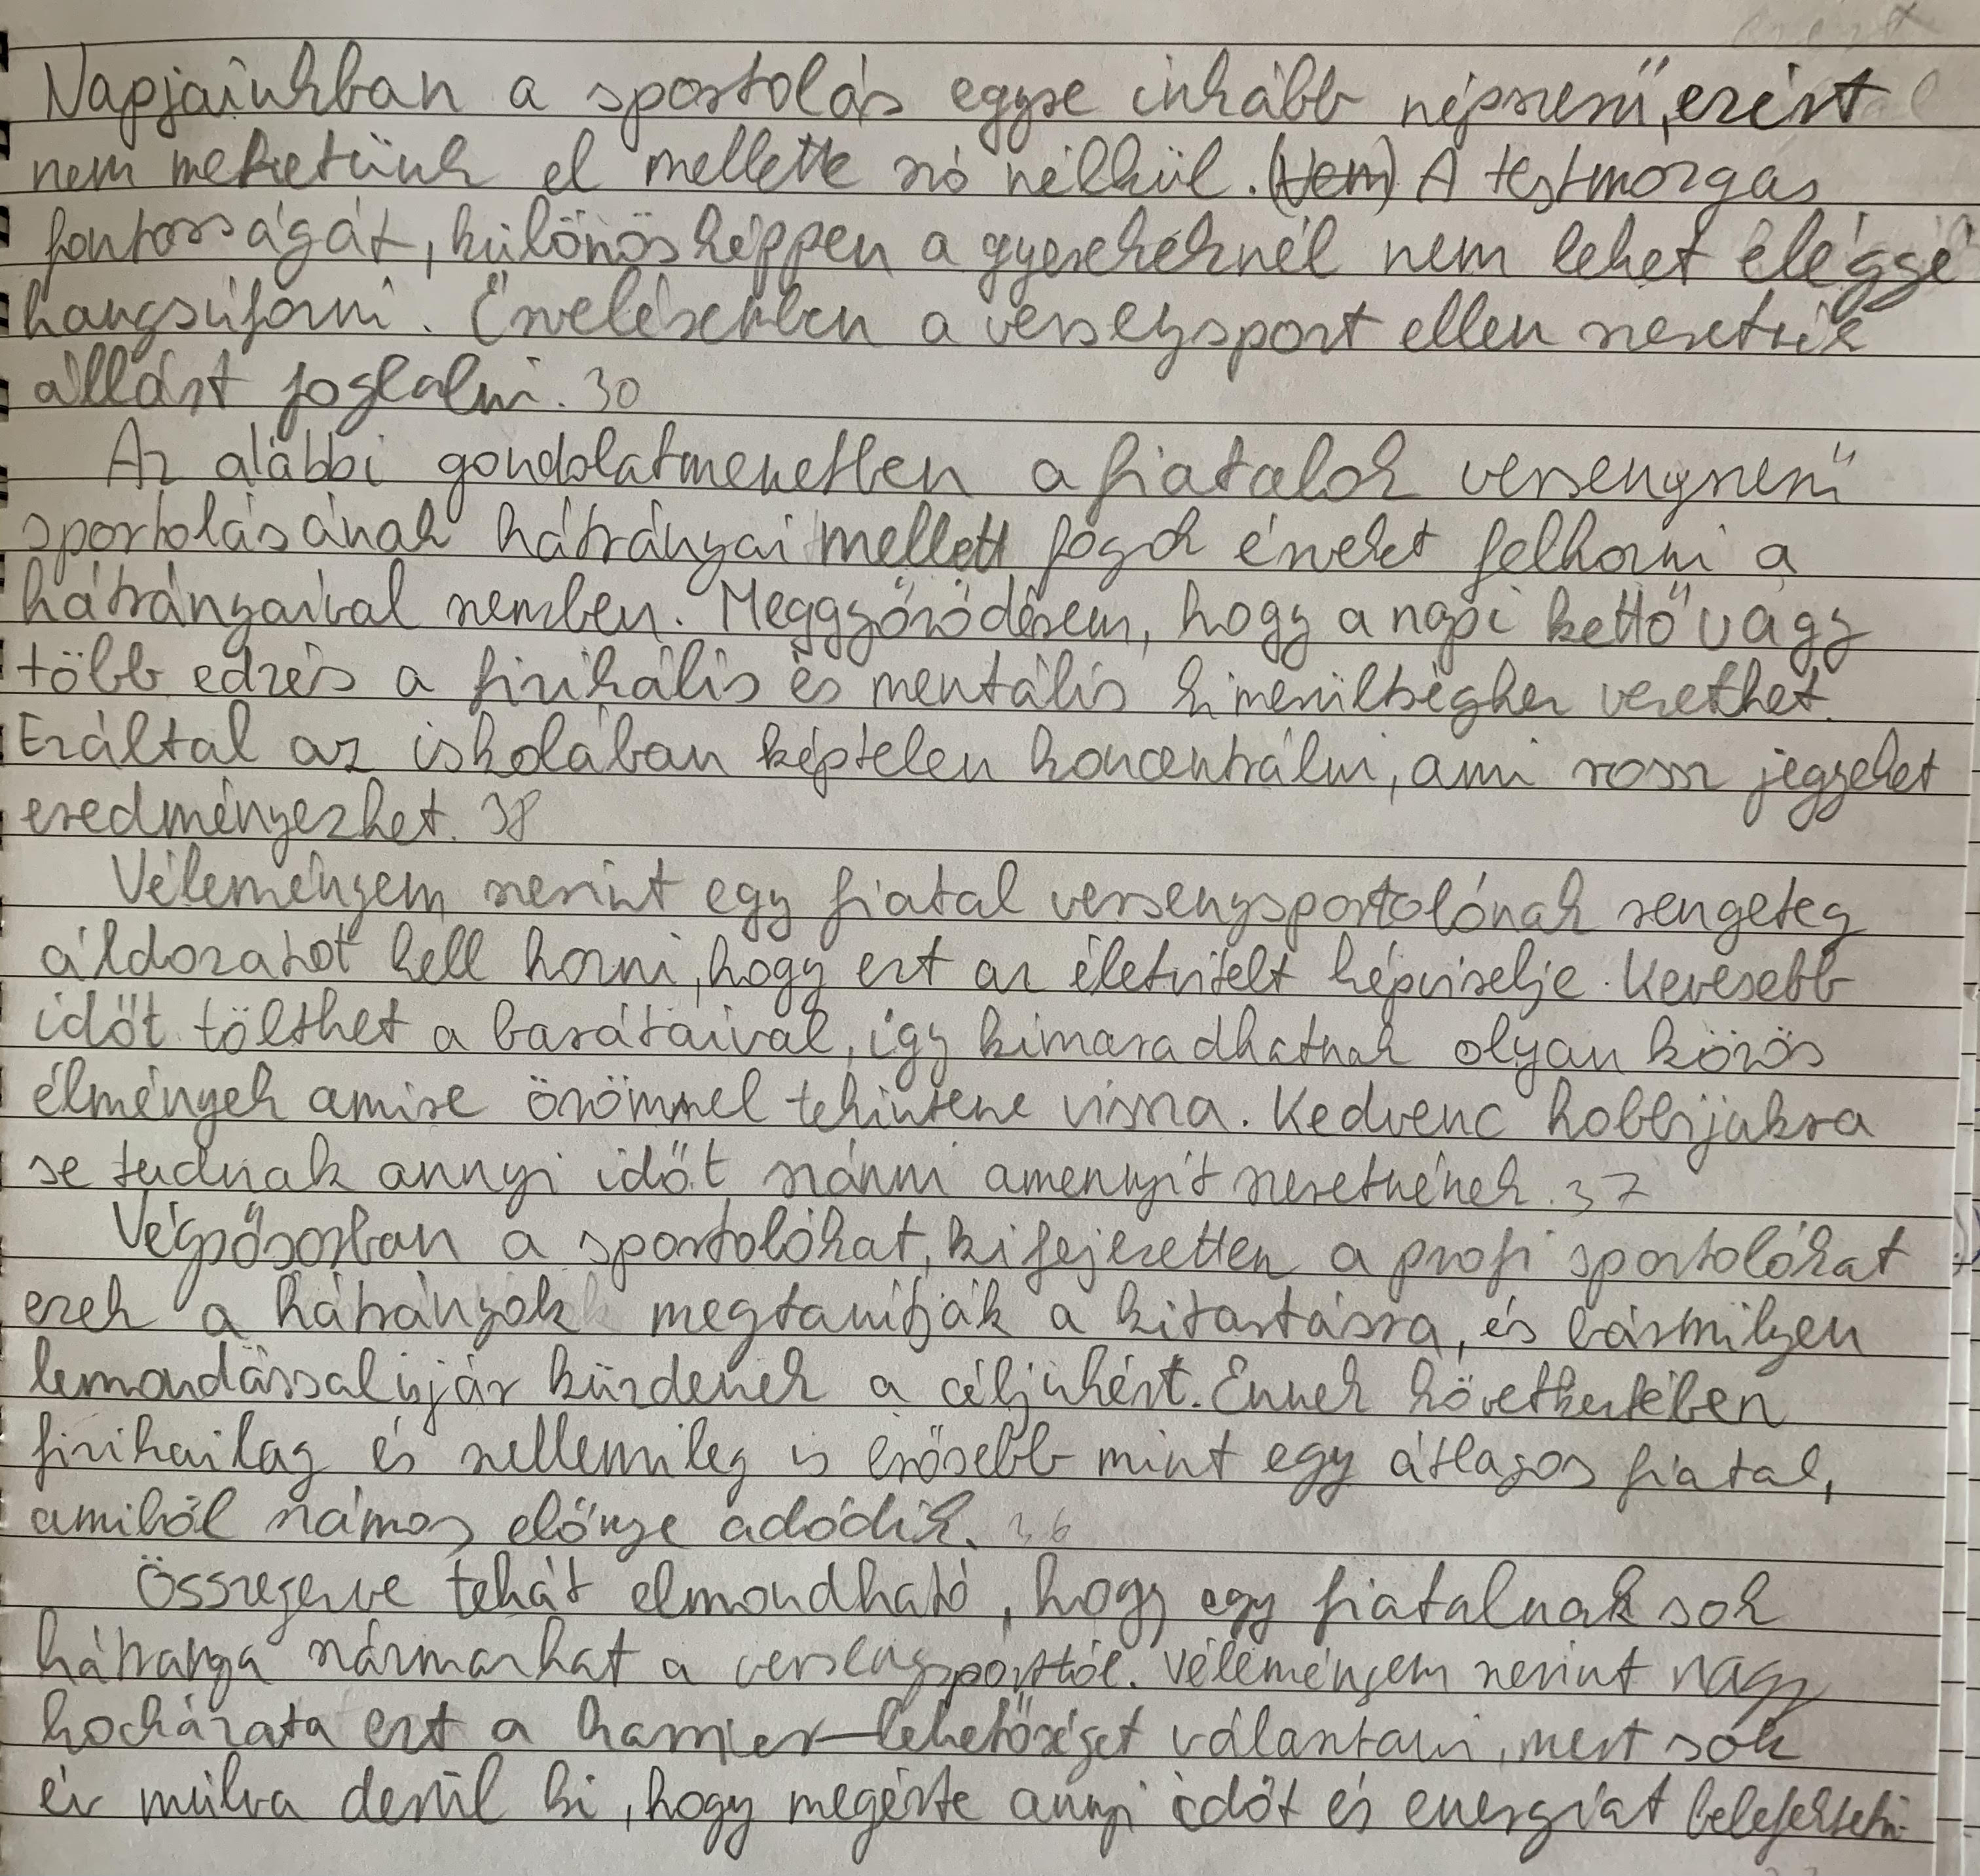 Napjainkban a sportolás egyre inkább népszerű, ezért
nem mehetünk el mellette szó nélkül. (Nem) A testmozgas
fontosságát, különösképpen a gyerekeknél nem lehet eléggé
hangsúlyozni. Érvelésemben a versenysport ellen szeretnék
állást foglalni. 30
Az alábbi gondolatmenetben a fiatalok versenyszerű
sportolásának hátrányai mellett fogok érveket felhozni a
hátrányaival szemben. Meggyőződésem, hogy a napi kettő vagy
több edzés a fizikális és mentális kimerültséghez vezethet.
Ezáltal az iskolában képtelen koncentrálni, ami rossz jegyeket
eredményezhet. 38
Véleményem szerint egy fiatal versenysportolónak rengeteg
áldozatot kell hozni, hogy ezt az életvitelt képviselje. Kevesebb
időt tölthet a barátaival, így kimaradhatnak olyan közös
élmények amire örömmel tekintene vissza. Kedvenc hobbijukra
se tudnak annyi időt szánni amennyit szeretnének. 37
Végsősorban a sportolókat, kifejezetten a profi sportolókat
ezek a hátrányok megtanítják a kitartásra, és bármilyen
lemondással is jár küzdenek a céljukért. Ennek következtében
fizikailag és szellemileg is erősebb mint egy átlagos fiatal,
amiből számos előnye adódik. 36
Összegezve tehát elmondható, hogy egy fiatalnak sok
hátranya származhat a versenysporttól. Véleményem szerint nagy
kockázata ezt a karrier-lehetőséget választani, mert sok
év múlva derül ki, hogy megérte annyi időt és energiát belefektetni.